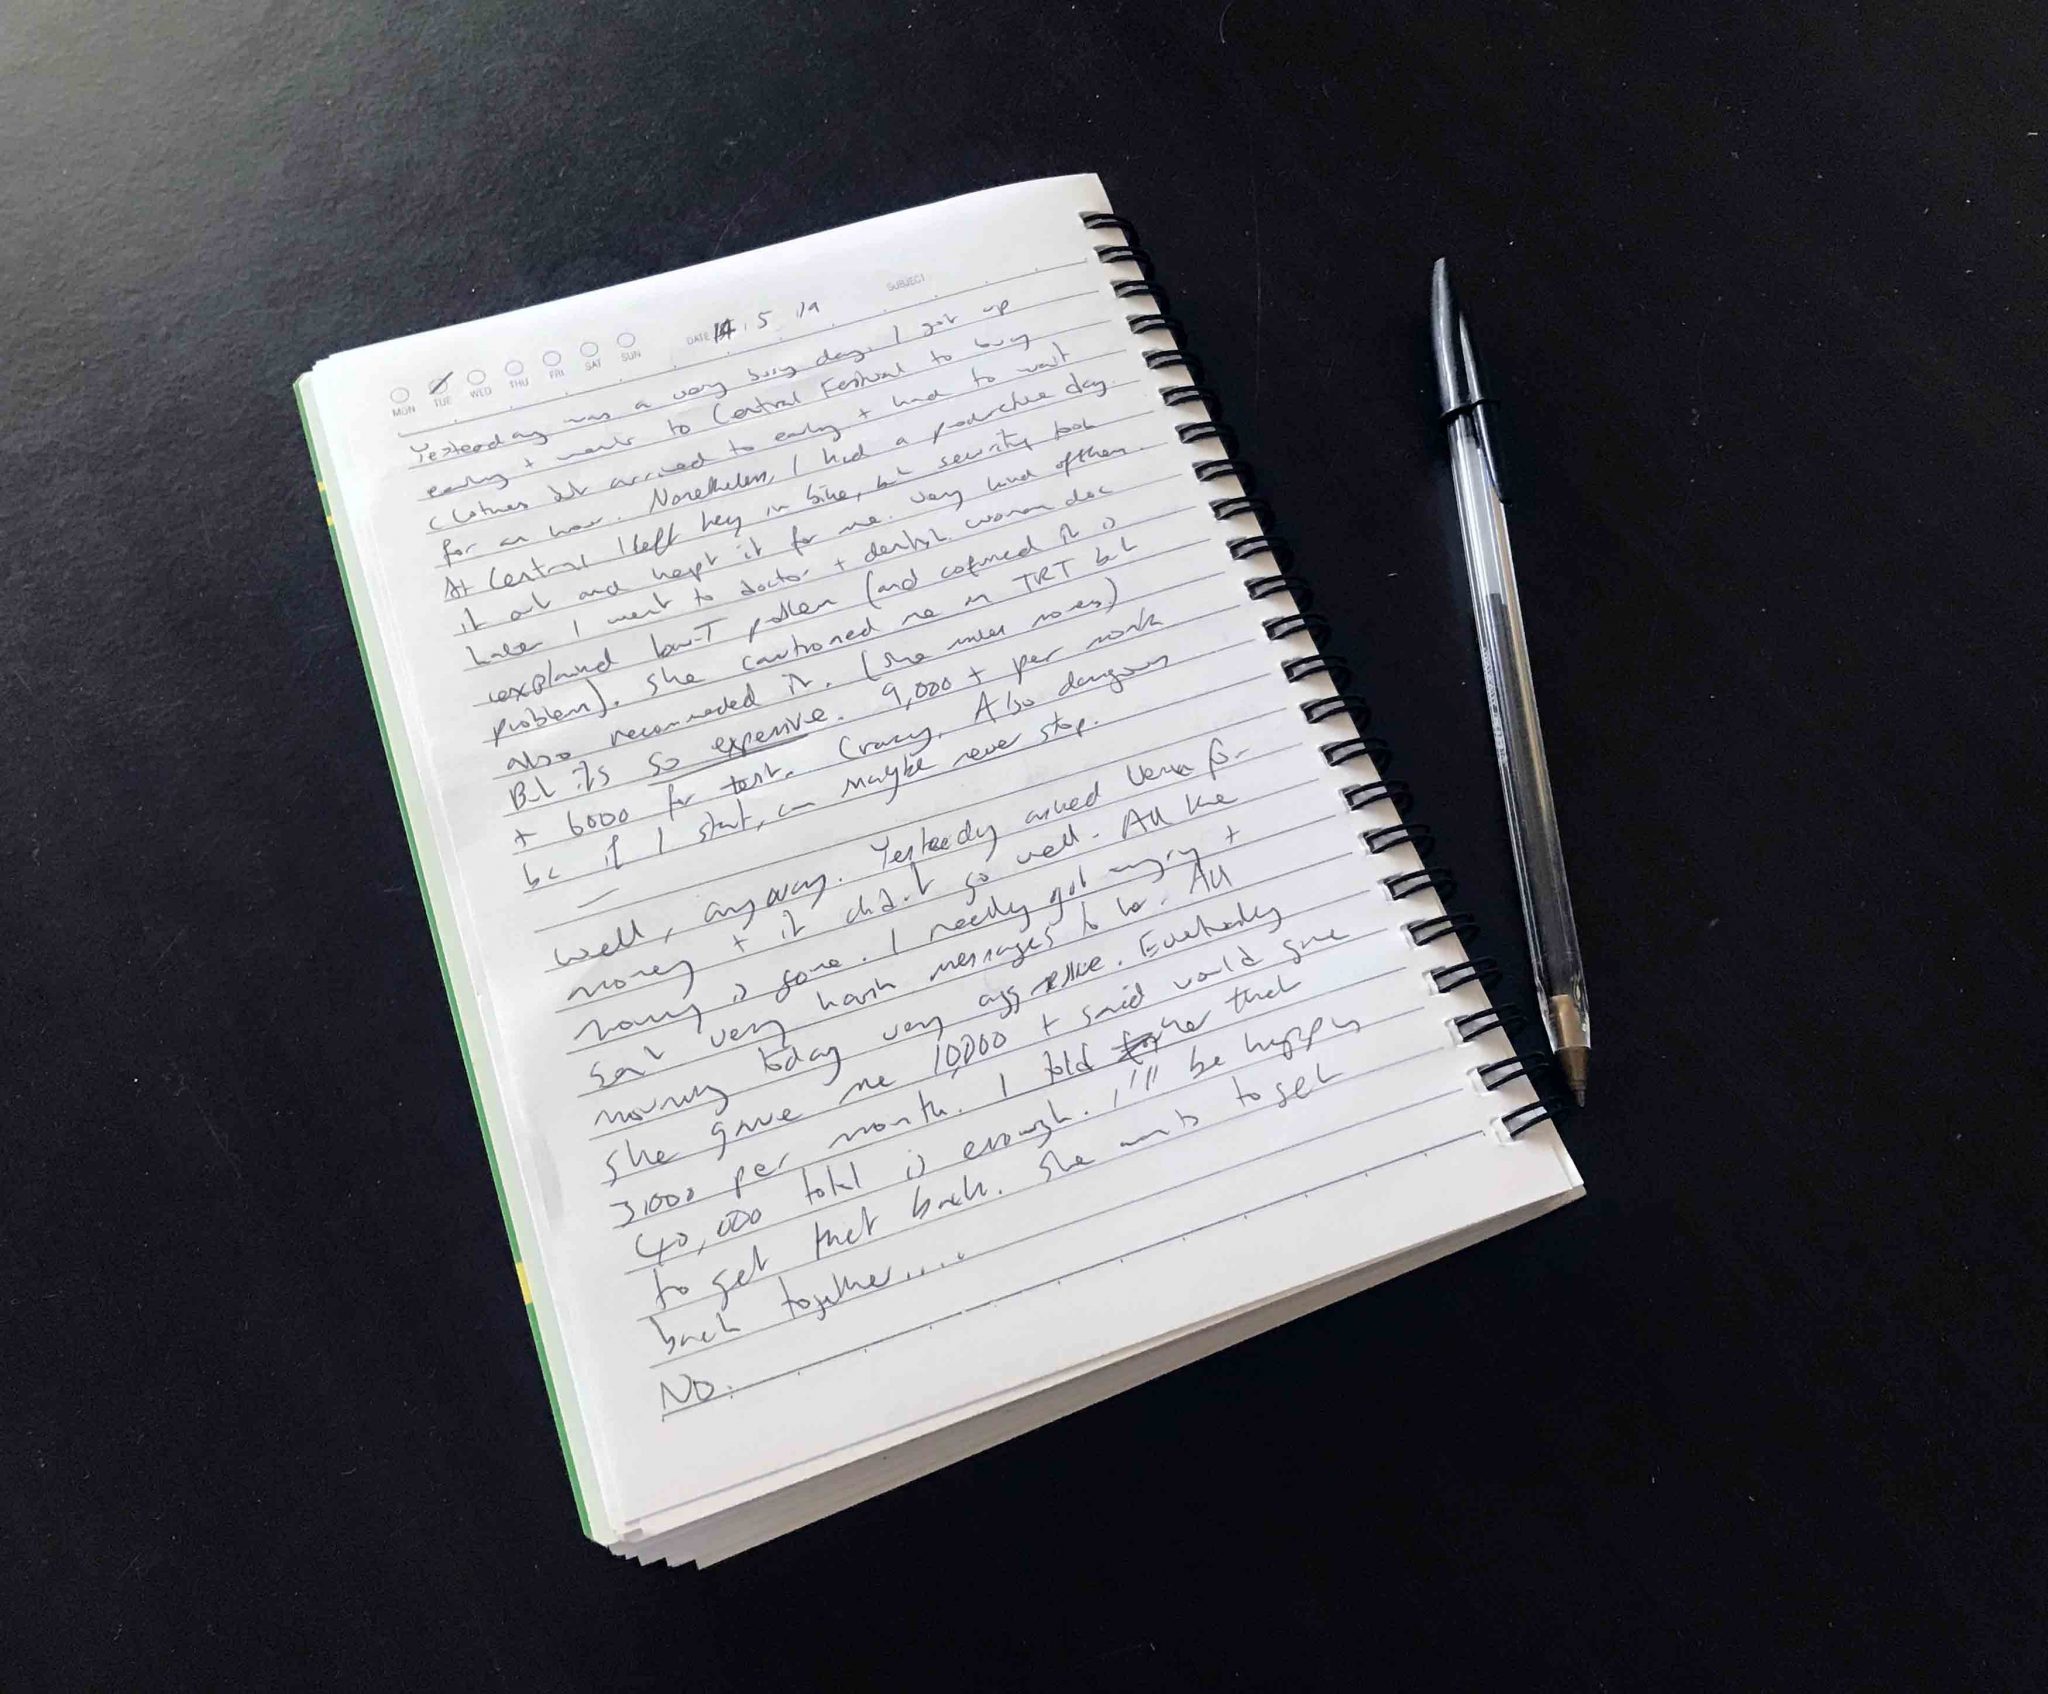 MON TUE WED THU FRI SAT SUN DATE 14.5.19 SUBJECT
Yesterday was a very busy day. I got up
early + went to Central Festival to buy
clothes but arrived to early + had to wait
for an hour. Nonetheless, I had a productive day.
At Central I left key in bike, but security took
it out and kept it for me. Very kind of them.
Later I went to doctor + dentist. woman doc
explained low-T problem (and confirmed it is
problem). She cautioned me on TRT but
also recommended it. (she
But its so expensive. 9,000 + per month
+ 6000 for test. Crazy. Also dangerous
bc if I start, can maybe never stop.
Well, anyway. Yesterday asked for
money + it didn't go well. All the
money is gone. I really got angry +
sent very harsh messages to her. All
morning today very aggressive. Eventually
she gave me 10,000 + said would give
3,000 per month. I told her that
40,000 total is enough. I'll be happy
to get that back. She wants to get
back together....
NO.